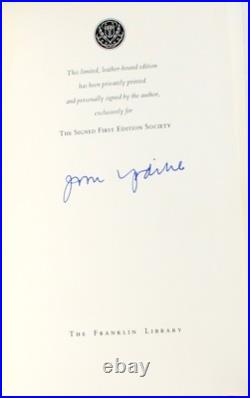 This limited, leather-bound edition
has been privately printed
and personally signed by the author,
exclusively for
THE SIGNED FIRST EDITION SOCIETY
John Updike
THE FRANKLIN LIBRARY
ebay.com